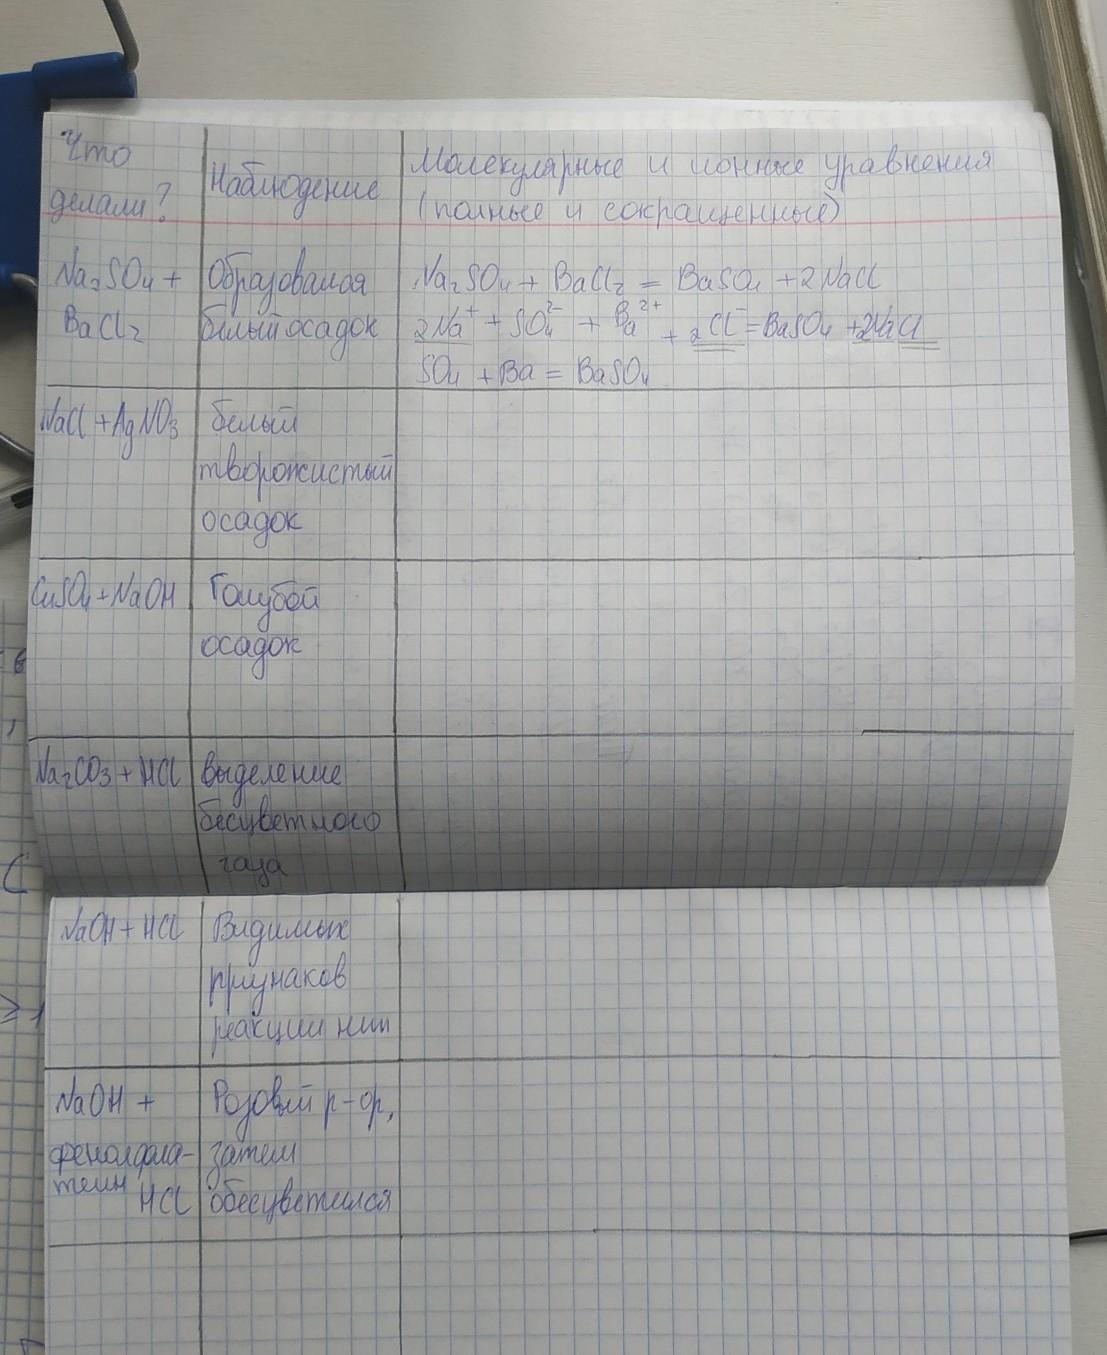 Что
делали?
Наблюдение
Молекулярные и ионные уравнения
(полные и сокращенные)
Na₂SO₄ +
BaCl₂
Образовался
белый осадок
Na₂SO₄ + BaCl₂ = BaSO₄ + 2NaCl
2Na⁺ + SO₄²⁻ + Ba²⁺ + 2Cl⁻ = BaSO₄ + 2NaCl
SO₄ + Ba = BaSO₄
NaCl + AgNO₃
белый
творожистый
осадок
CuSO₄ + NaOH
Голубой
осадок
Na₂CO₃ + HCl
выделение
бесцветного
газа
NaOH + HCl
Видимых
признаков
реакции нит
NaOH +
фенолфта-
теин HCl
Розовый р-ор,
затем
обесцветился